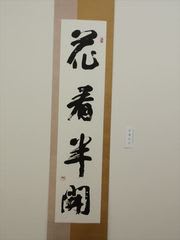 花看半開